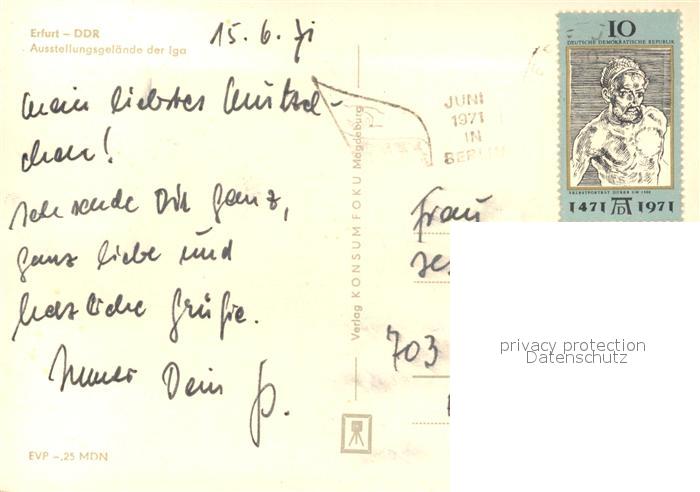 Erfurt – DDR
Ausstellungsgelände der Iga
15.6.71
Mein liebstes
chen!
Ich sende Dir ganz,
ganz liebe und
herzliche Grüße.
Immer Dein
EVP –,25 MDN
Verlag KONSUM FOKU Magdeburg
JUNI
1971
IN
BERLIN
10
DEUTSCHE DEMOKRATISCHE REPUBLIK
SELBSTPORTRÄT DÜRER UM 1500
1471 AD 1971
Frau
703
privacy protection
Datenschutz